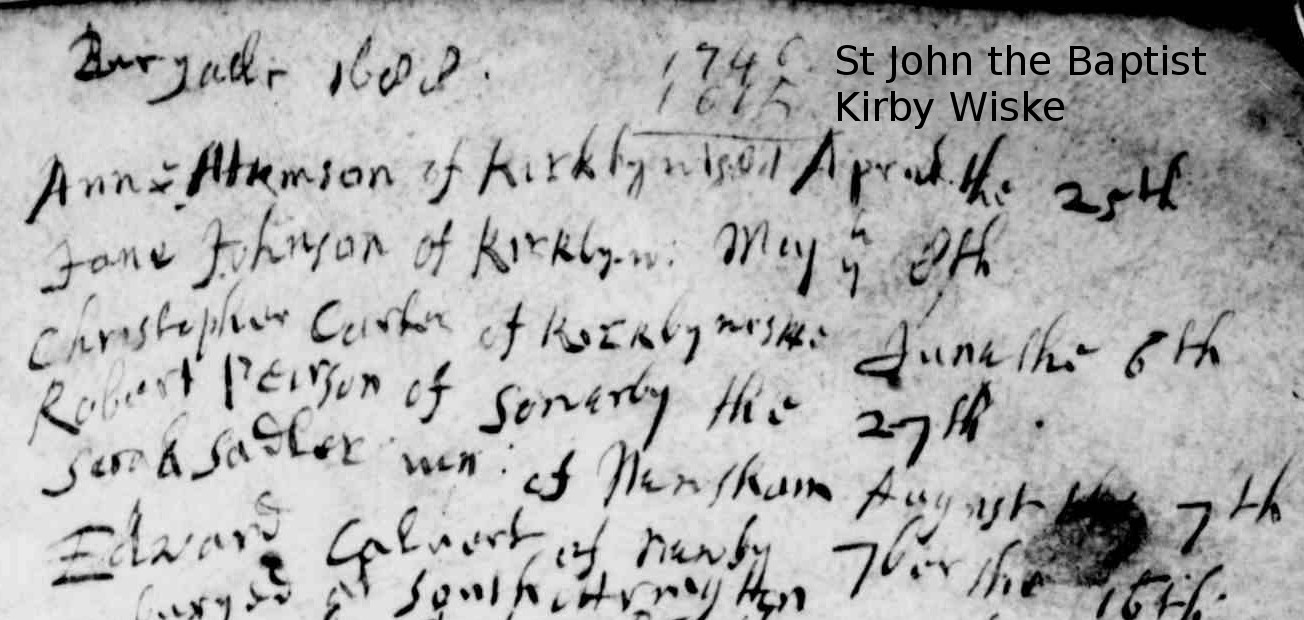 Buryalls 1688.
1746
1615
St John the Baptist
Kirby Wiske
Anne Atkinson of Kirkbywisk Aprill the 25th
Jane Johnson of Kirkby.w: May yᵉ 8th
Christopher Carter of Kirkbywiske June the 6th
Robert Peirson of Sowerby the 27th.
Sarah Sadler of Newsham August the 7th
Edward Calvert of Newby 7ber the 16th
buryed at South